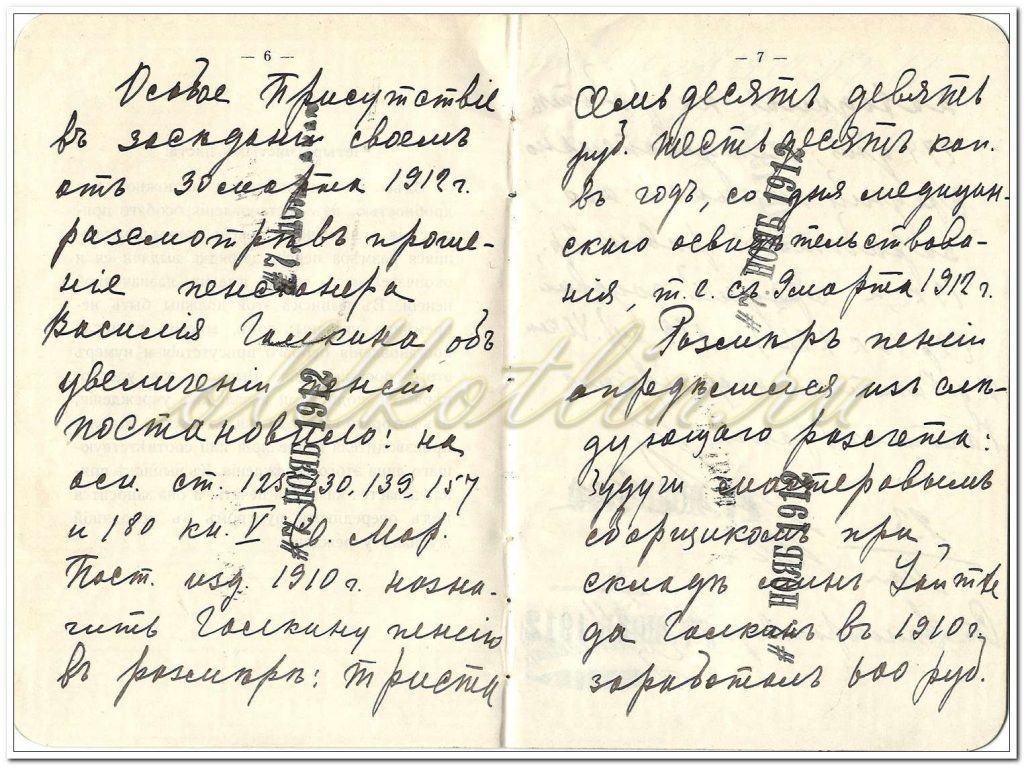 — 6 —
Особое Присутствіе
въ заседаніи своемъ
отъ 30 марта 1912 г.
разсмотрѣвъ проше-
ніе пенсіонера
Василія Галкина объ
увеличеніи пенсіи
постановило: на
осн. ст. 125, 130, 139, 157
и 180 кн. V Св. Мор.
Пост. изд. 1910 г. назна-
чить Галкину пенсію
въ размѣрѣ: триста
#7. НОЯБ 1912
— 7 —
семьдесятъ девять
руб. шестьдесятъ коп.
въ годъ, со дня медицин-
скаго освидѣтельствова-
нія, т.е. съ 9 марта 1912 г.
Размѣръ пенсіи
опредѣлился изъ слѣ-
дующаго разсчета:
Будучи мастеровымъ
сборщикомъ при
складѣ минъ
да Галкинъ въ 1910 г.
заработалъ 600 руб.
#7. НОЯБ 1912
#7 НОЯБ 1912
olhkotlin.ru